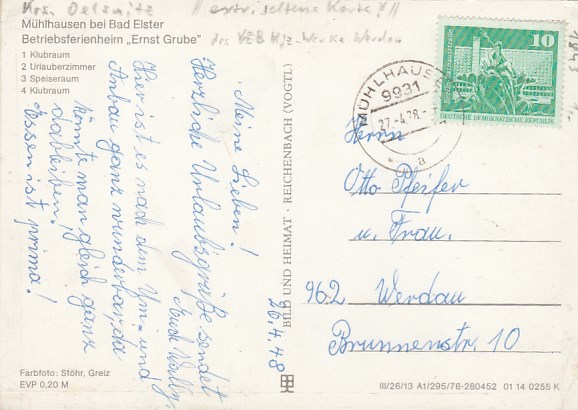 Krs. Oelsnitz !! extr. seltene Karte !!
Mühlhausen bei Bad Elster
Betriebsferienheim „Ernst Grube"
des VEB Kfz-Werke Werdau
1 Klubraum
2 Urlauberzimmer
3 Speiseraum
4 Klubraum
Meine Lieben!
Herzliche Urlaubsgrüße sendet
Euch Wally.
Hier ist es nach dem Um- und
Anbau ganz wunderbar, da
könnte man gleich ganz
dableiben!
Essen ist prima!
26.4.78
Farbfoto: Stöhr, Greiz
EVP 0,20 M
BILD UND HEIMAT · REICHENBACH (VOGTL)
10
DEUTSCHE DEMOKRATISCHE REPUBLIK
MÜHLHAUSEN
9931
27.-4.78.
a
Herrn
Otto Pfeifer
u. Frau.
962 Werdau
Brunnenstr. 10
III/26/13 A1/295/76-280452 01 14 0255 K